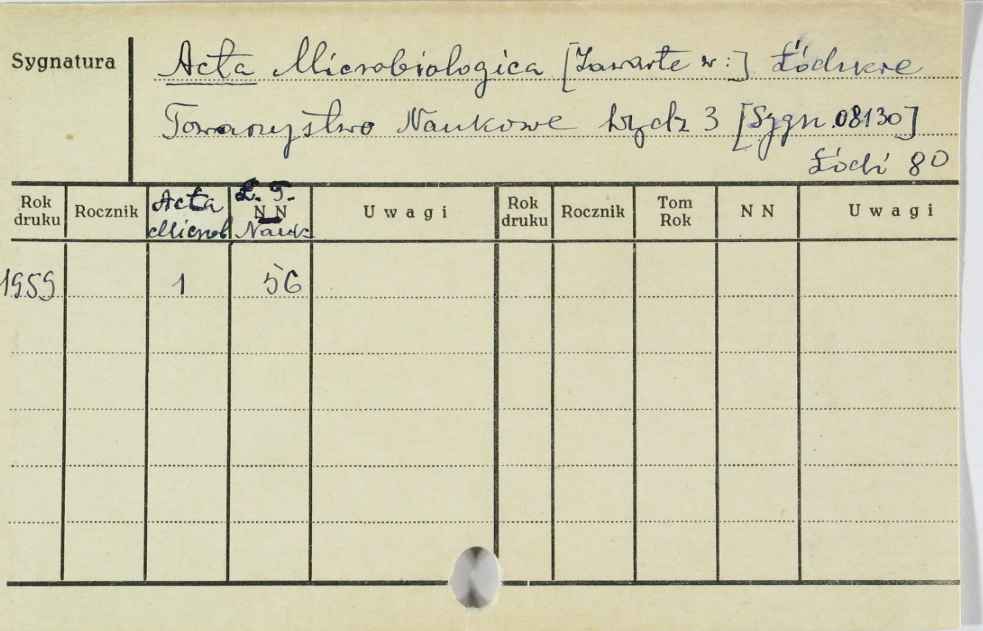 Sygnatura
Acta Microbiologica [Zawarte w:] Łódzkie
Towarzystwo Naukowe Wydz 3 [Sygn. 08130]
Łódź 80
Rok druku Rocznik Acta Microb Ł. T. NN Nauk Uwagi Rok druku Rocznik Tom Rok NN Uwagi
1959 1 56